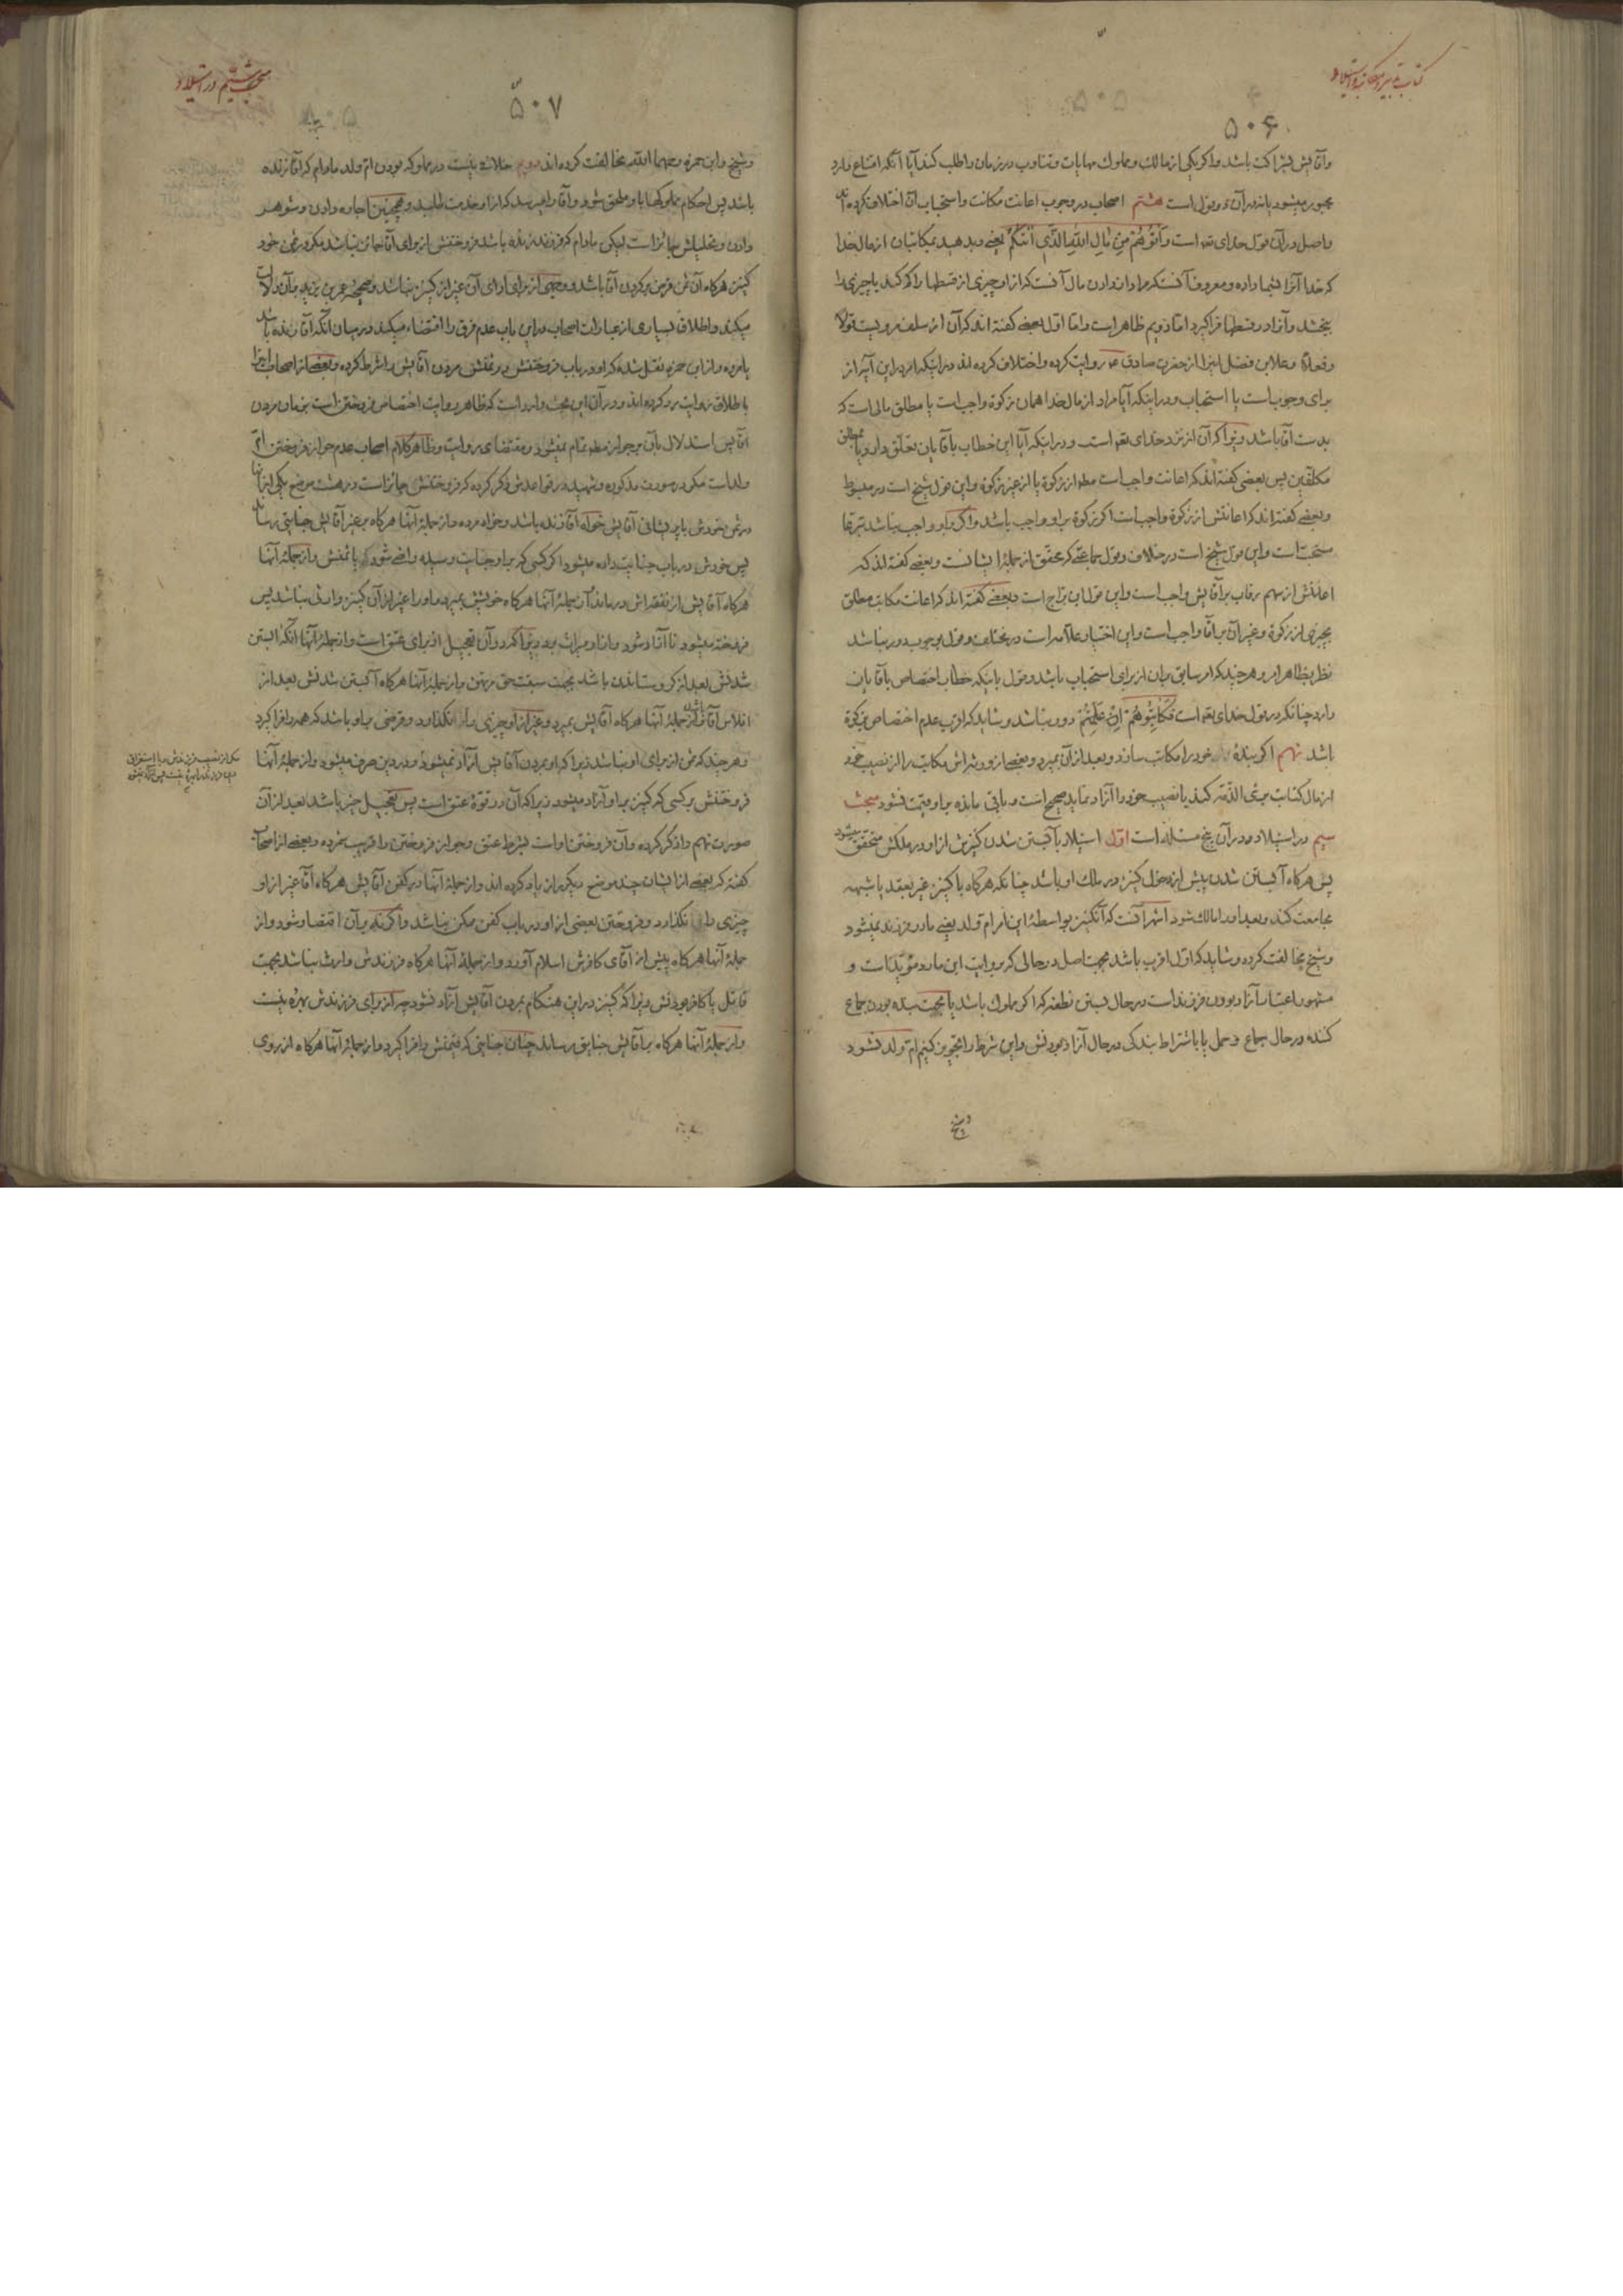 کتاب تدبیر و مکاتبه و استیلاد
۵۰۶
وآقایش بشراکت باشد واکر یکی از مالک ومملوک مهایات وتناوب در زمان را طلب کند آیا آنکه امتناع دارد
مجبور میشود یا نه در آن دو قول است هشتم اصحاب در وجوب اعانت مکاتب واستحباب آن اختلاف کرده اند
واصل در آن قول خدای تعه است وَآتُوهُمْ مِنْ مَالِ اللّهِ الَّذِی آتٰیکُمْ یعنی وبدهید بمکاتبان از مال خدا
که خدا آنرا بشما داده ومعروف آنست که مراد از دادن مال آنست که از او چیزی از قسطها را کم کند یا چیزی را
ببخشد وآنرا در قسطها فراکیرد اما دویم ظاهر است واما اول بعضی کفته اند که آن از سلف مرویست قولا
وفعلا وعلا بن فضل اینرا از حضرت صادق ع روایت کرده واختلاف کرده اند در اینکه امر در این آیه از
برای وجوبست یا استحباب ودر اینکه آیا مراد از مال خدا همان زکوة واجب است یا مطلق مالی است که
بدست آقا باشد زیرا که آن از نزد خدای تعه است ودر اینکه آیا این خطاب بآقایان تعلق دارد یا بمطلق
مکلفین پس بعضی کفته اند که اعانت واجب است مط از زکوة یا از غیر زکوة واین قول شیخ است در مبسوط
وبعضی کفته اند که اعانتش از زکوة واجب است اکر زکوة بر او واجب باشد واکر بر او واجب نباشد تبرعا
مستحب است واین قول شیخ است در خلاف وقول جماعتی که محقق از جملۀ ایشانست وبعضی کفته اند که
اعانتش از سهم رقاب بر آقایش واجب است واین قول ابن براج است وبعضی کفته اند که اعانت مکاتب مطلق
بچیزی از زکوة وغیر آن بر آقا واجب است واین اختیار علامه است در مختلف وقول بوجوب دور نباشد
نظر بظاهر امر وهر چند که امر سابق بر آن از برای استحباب باشد وقول باینکه خطاب اختصاص بآقایان
دارد چنانکه در قول خدای تعه است فَکَاتِبُوهُمْ اِنْ عَلِمْتُمْ دور نباشد وشاید که اقرب عدم اختصاص بزکوة
باشد نهم اکر بندۀ خود را مکاتب سازد وبعد از آن بمیرد وبعضی از ورثه اش مکاتب را از نصیب خود
از مال کتابت بری الذمه کند یا نصیب خود را آزاد نماید صحیح است وباقی مانده بر او قیمت نشود مبحث
سیم در استیلاد ودر آن پنج مسئله است اول استیلاد بآبستن شدن کنیزش از او در ملکش متحقق میشود
پس هرکاه آبستن شدن پیش از دخول کنیز در ملک او باشد چنانکه هرکاه با کنیز غیر بعقد یا شبهه
مجامعت کند وبعد او را مالک شود اشهر آنست که آنکنیز بواسطۀ این امر ام ولد یعنی مادر فرزند نمیشود
وشیخ مخالفت کرده وشاید که اول اقرب باشد بجهت اصل در حالی که بروایت ابن مارد مؤید است و
مشهور اعتبار آزاد بودن فرزند است در حال بستن نطفه که اکر مملوک باشد یا بجهت بنده بودن جماع
کننده در حال جماع وحمل یا باشتراط بندکی در حال آزاد بودنش واین شرط را تجویز کنیم ام ولد نشود
وشیخ
مبحث سیّم در استیلاد
۵۰۷
وشیخ وابن حمزه رحمهما الله مخالفت کرده اند دویم خلافی نیست در مملوکه بودن ام ولد مادام که آقا زنده
باشد پس احکام مملوکها باو ملحق شود وآقا را میرسد که از او خدمت طلبد وهمچنین اجاره دادن وشوهر
دادن وتحلیلش جائز است لیکن مادام که فرزند زنده باشد فروختنش از برای آقا جائز نباشد مکر در ثمن خود
کنیز هرکاه آن ثمن قرض بر کردن آقا باشد ووجهی از برای ادای آن غیر از کنیز نباشد وصحیحۀ عمر بن یزید بر آن دلالت
میکند واطلاق بسیاری از عبارات اصحاب در این باب عدم فرق را اقتضاء میکند در میان آنکه آقا زنده باشد
یا مرده واز ابن حمزه نقل شده که او در باب فروختنش در ثمنش مردن آقایش را شرط کرده وبعضی از اصحاب اینرا
باطلاق روایت رد کرده اند ودر آن این بحث وارد است که ظاهر روایت اختصاص فروختن است بزمان مردن
آقا پس استدلال بآن بر جواز مط تمام نمیشود ومقتضای روایت وظاهر کلام اصحاب عدم جواز فروختن ام
ولد است مکر در صورت مذکوره وشهید در قواعدش ذکر کرده که فروختنش جائز است در هشت موضع یکی از آنها
در ثمن خودش با پریشانی آقایش خواه آقا زنده باشد وخواه مرده واز جملۀ آنها هرکاه بر غیر آقایش جنایتی رساند
پس خودش در باب جنایت داده میشود اکر کسی که بر او جنایت رسیده راضی شود یا ثمنش واز جملۀ آنها
هرکاه آقایش از نفقه اش درماند واز جملۀ آنها هرکاه خویشش بمیرد واو را غیر از آن کنیز وارثی نباشد پس
فروخته میشود تا آزاد شود واز او میراث برد زیرا که در آن تعجیل از برای عتق است واز جملۀ آنها آنکه آبستن
شدنش بعد از کرو ستاندن باشد بجهت سبقت حق مرتهن واز جملۀ آنها هرکاه آبستن شدنش بعد از
افلاس آقا باشد واز جملۀ آنها هرکاه آقایش بمیرد وغیر از او چیزی وا نکذارد وقرضی بر او باشد که همه را فراکیرد
وهر چند که ثمن از برای او نباشد زیرا که او بمردن آقایش آزاد نمیشود ودر دین صرف میشود واز جملۀ آنها
فروختنش بر کسی که کنیز بر او آزاد میشود زیرا که آن در قوۀ عتق است پس تعجیل خیر باشد بعد از آن
صورت نهم را ذکر کرده وآن فروختن اوست بشرط عتق وجواز فروختن را قریب شمرده وبعضی از اصحاب
کفته که بعضی از ایشان چند موضع دیکر را زیاد کرده اند واز جملۀ آنها در کفن آقایش هرکاه آقا غیر از او
چیزی وا نکذارد وفروختن بعضی از او در باب کفن ممکن نباشد واکر نه بر آن اقتصار شود واز
جملۀ آنها هرکاه پیش از آقای کافرش اسلام آورد واز جملۀ آنها هرکاه فرزندش وارث نباشد بجهت
قاتل یا کافر بودنش زیرا که کنیز در این هنکام بمردن آقایش آزاد نشود چه از برای فرزندش بهره نیست
واز جملۀ آنها هرکاه بر آقایش جنایتی رساند چنان جنایتی که قیمتش را فراکیرد واز جملۀ آنها هرکاه از روی